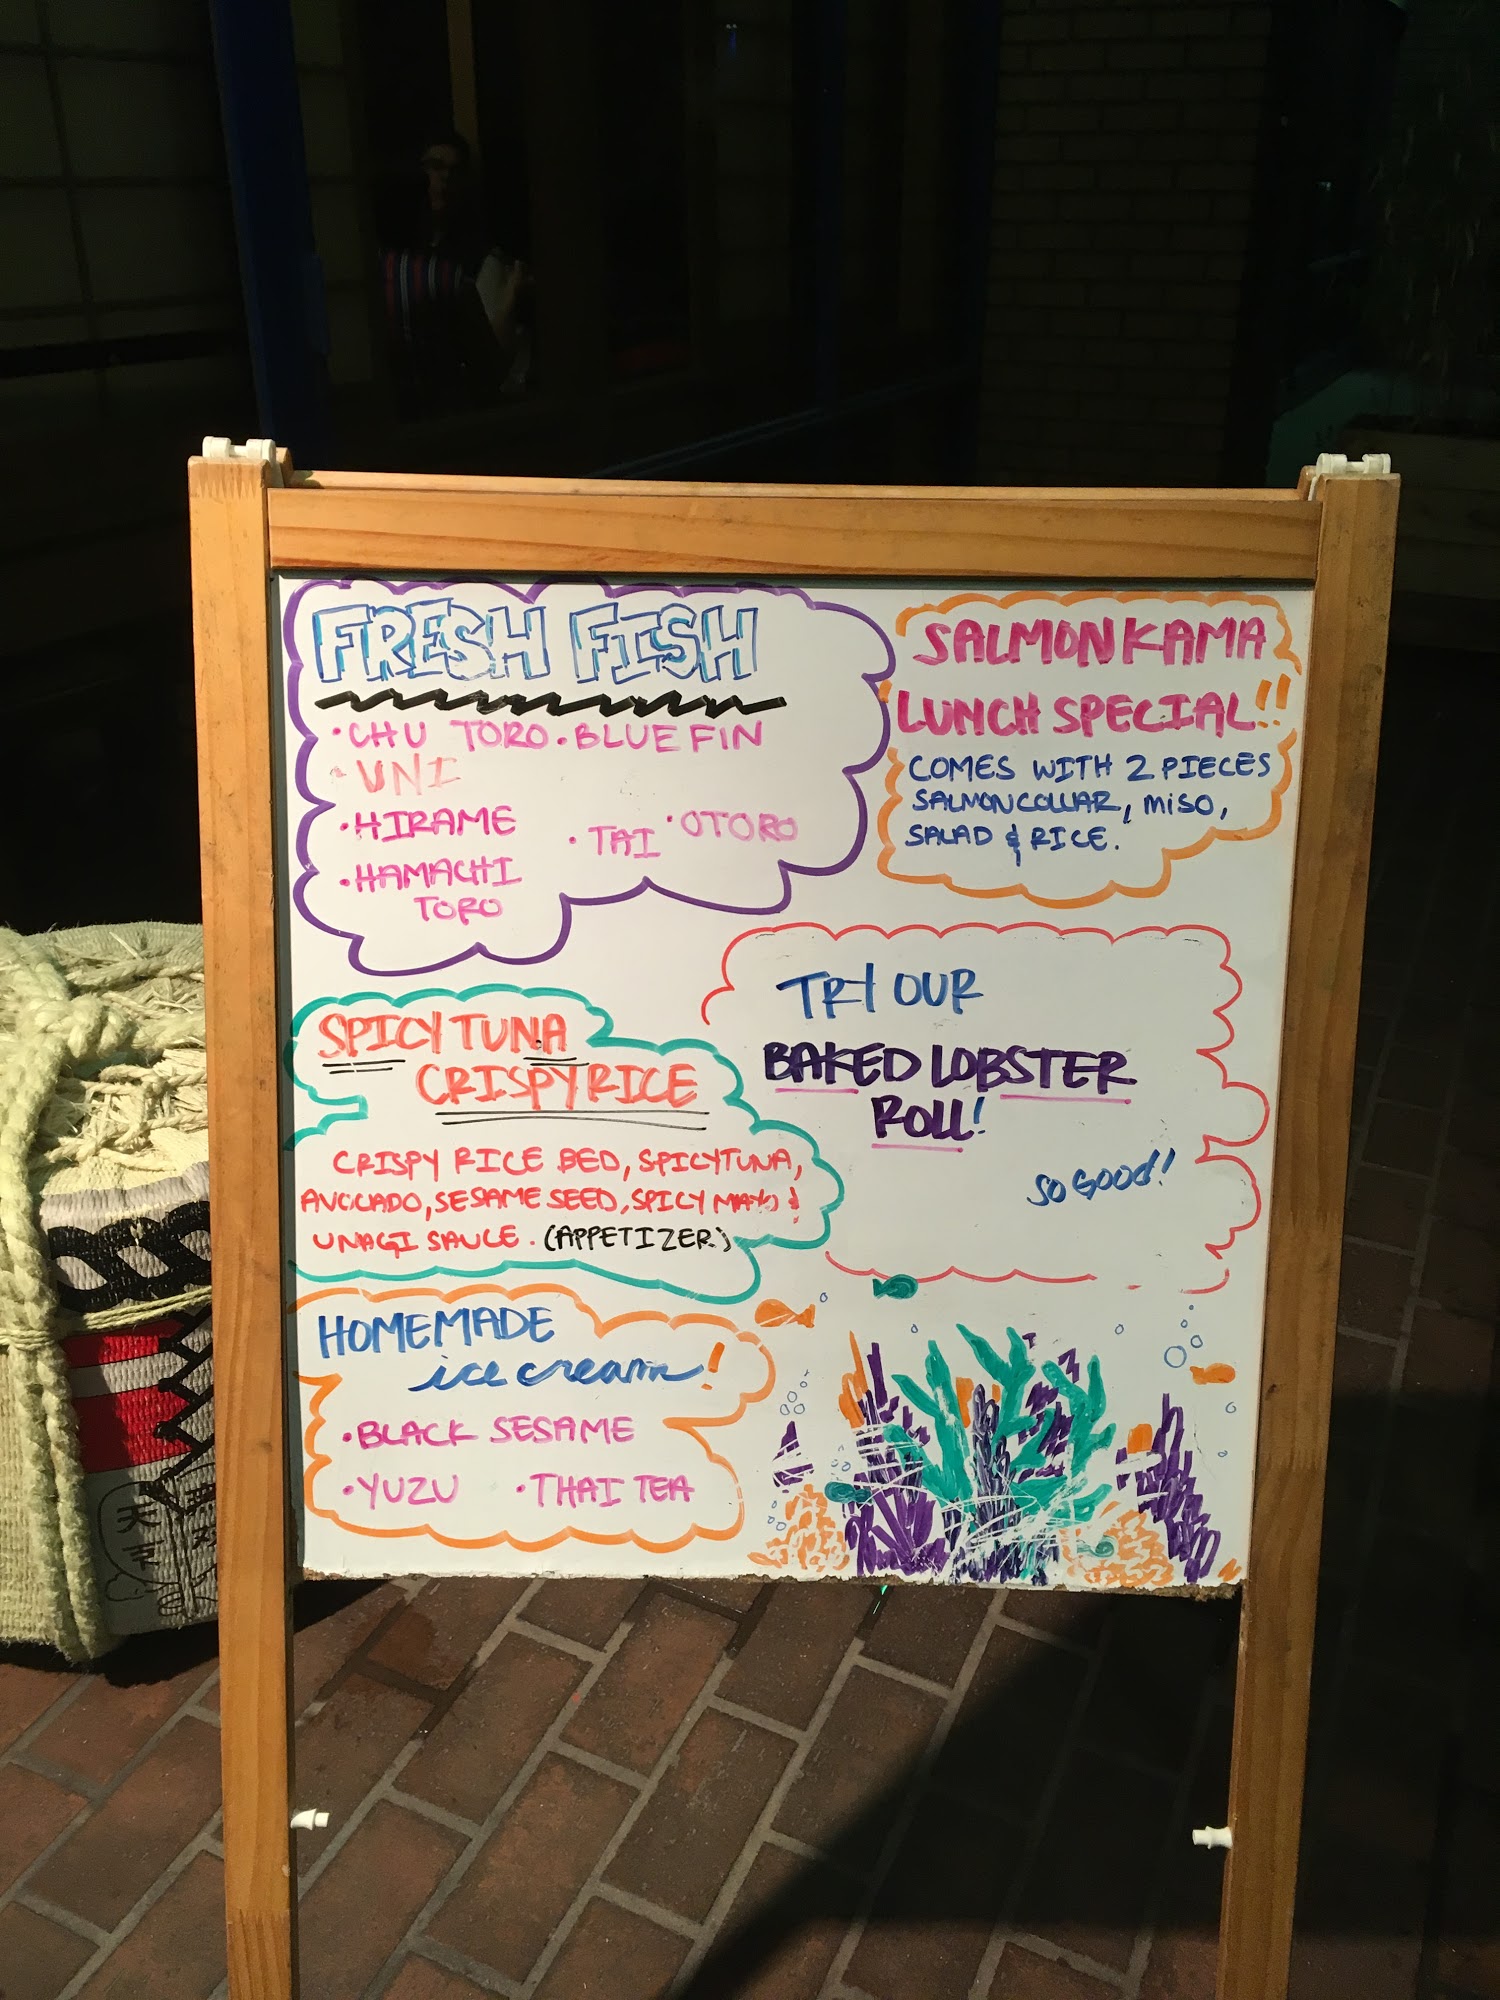 FRESH FISH
• CHU TORO • BLUE FIN
• UNI
• HIRAME
• TAI • OTORO
• HAMACHI
TORO
SALMON KAMA
LUNCH SPECIAL!!
COMES WITH 2 PIECES
SALMON COLLAR, MISO,
SALAD & RICE.
TRY OUR
BAKED LOBSTER
ROLL!
SO GOOD!
SPICY TUNA
CRISPY RICE
CRISPY RICE BED, SPICY TUNA,
AVOCADO, SESAME SEED, SPICY MAYO &
UNAGI SAUCE. (APPETIZER)
HOMEMADE
ice cream!
• BLACK SESAME
• YUZU • THAI TEA